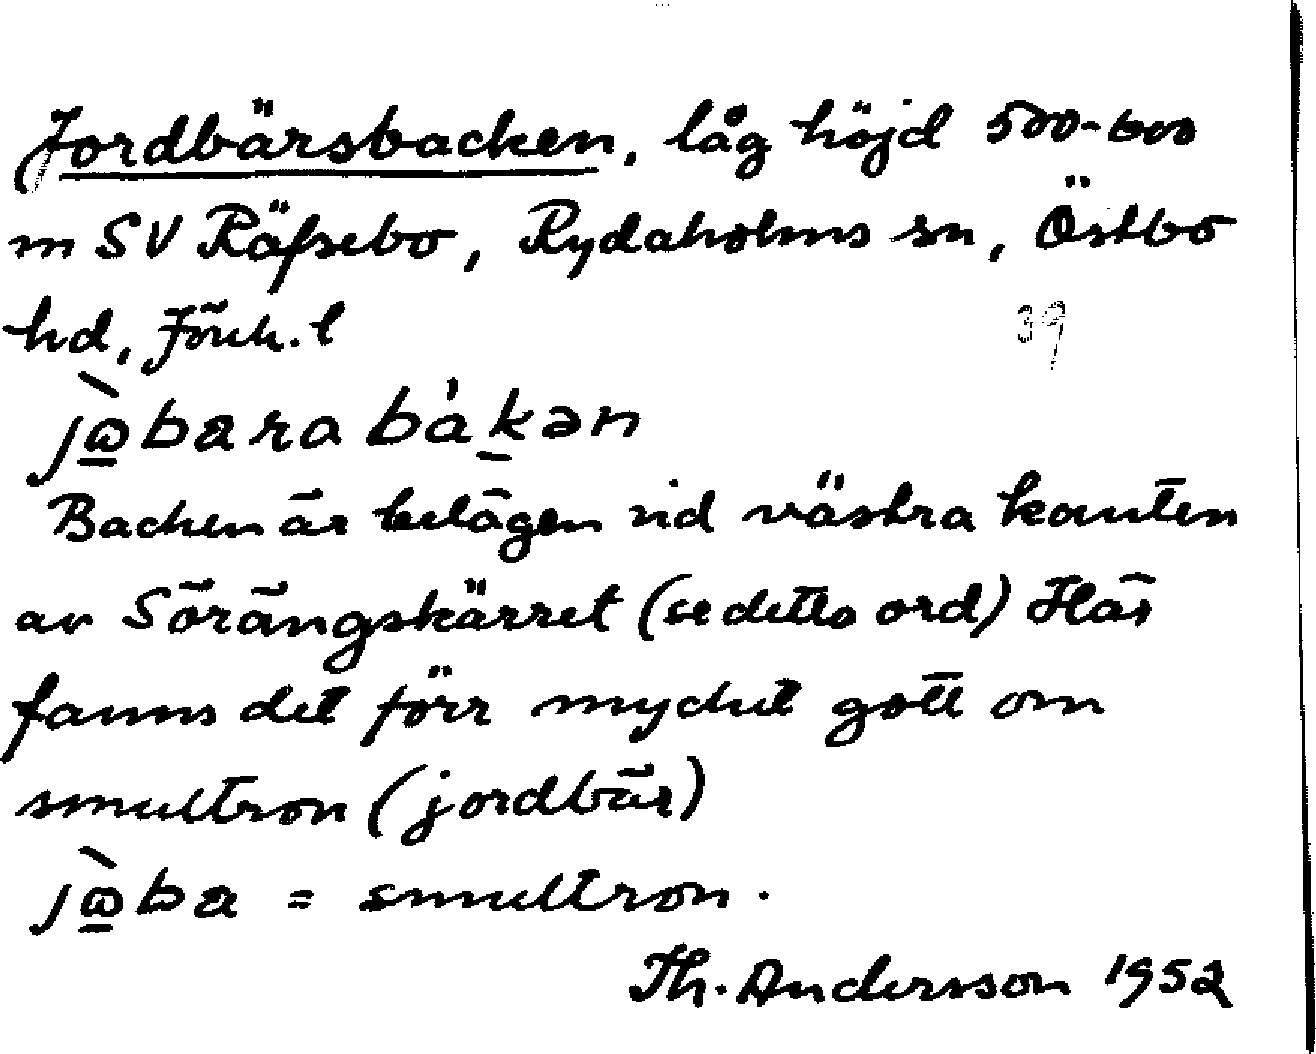 Jordbärsbacken, låg höjd 500-600
m SV Räfsebo, Rydaholms sn, Östbo
hd, Jönk. l
39
jọ̀bara bàkən
Backen är belägen vid västra kanten
av Sörängskärret (se detta ord) Här
fanns det förr mycket gott om
smultron (jordbär)
jọ̀ba = smultron.
Th. Andersson 1952